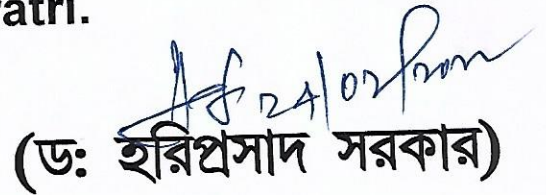 atri.
24/02/2021
(ড: হরিপ্রসাদ সরকার)